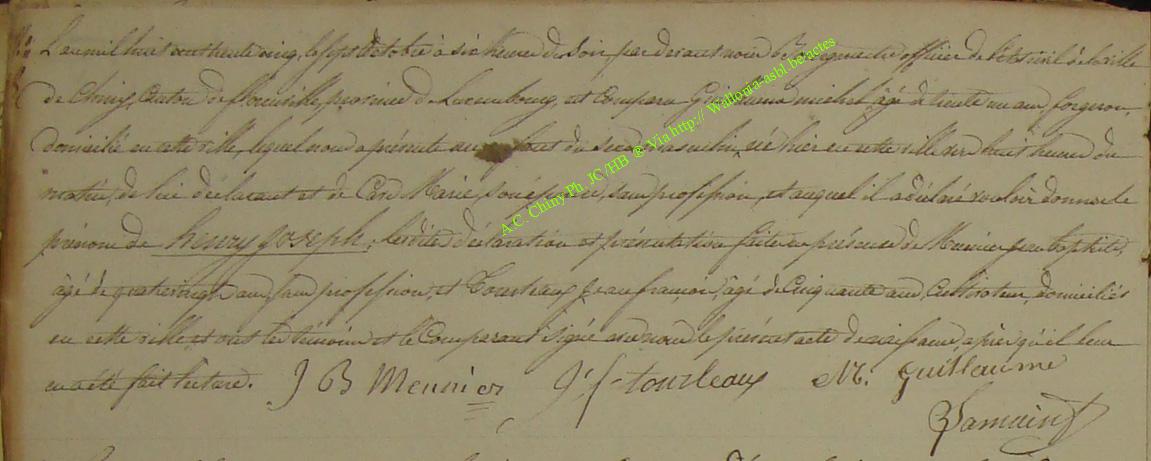 L'an mil huit cent trente cinq, le sept octobre à six heures du soir, par devant nous Bourgmestre officier de l'état civil de la ville
de Chiny, Canton de florenville, province de Luxembourg, est comparu Guillaume michel, âgé de trente un ans, forgeron,
domicilié en cette ville, lequel nous a présenté un enfant du sexe masculin, né hier en cette ville vers huit heures du
matin, de lui déclarant et de Marie, son épouse, sans profession, et auquel il a déclaré vouloir donner le
prénom de henry Joseph, lesdites déclaration et présentation faites en présence de Meunier jean baptiste,
âgé de quatrevingt ans, sans profession, et Tourteaux Jean françois, âgé de Cinquante ans, Cultivateur, domiciliés
en cette ville et ont les témoins et le Comparant signé avec nous le présent acte de naissance après qu'il leur
en a été fait lecture. J B Meunier J f tourteaux M. Guillaume
A.C. Chiny Ph. JC/HB ® Via http:// Wallonia-asbl.be/actes